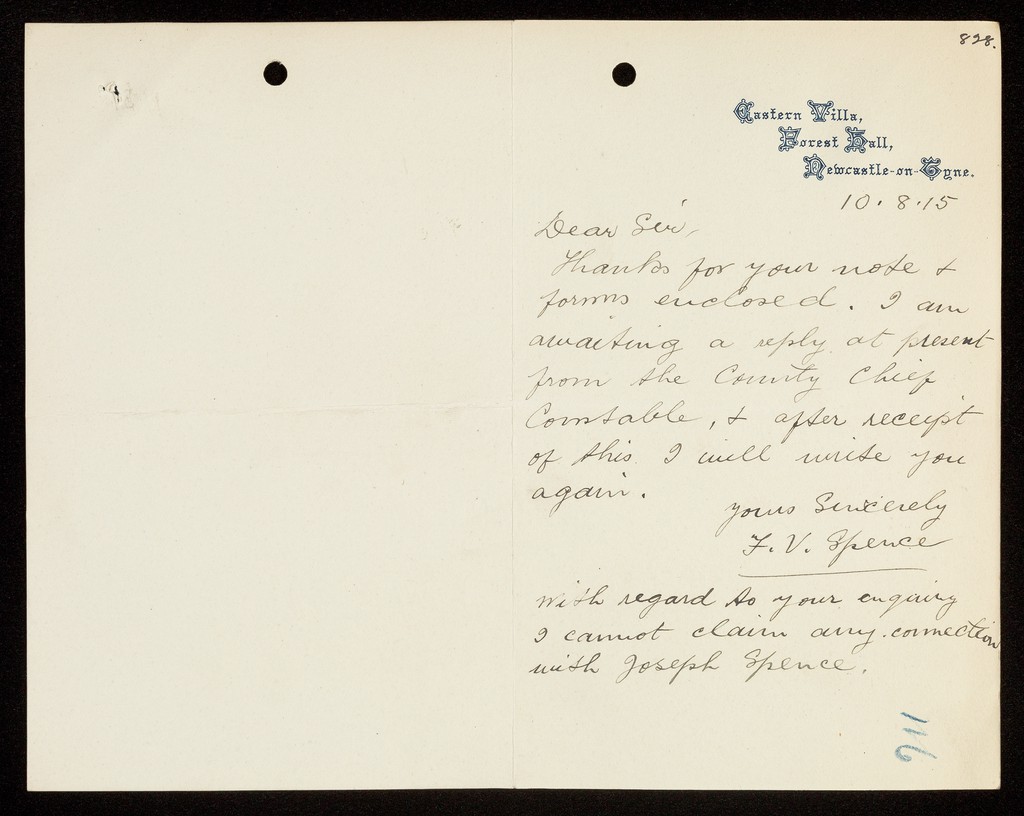 828.
Eastern Villa,
Forest Hall,
Newcastle-on-Tyne.
10.8.15
Dear Sir,
Thanks for your note &
forms enclosed. I am
awaiting a reply at present
from the County Chief
Constable, & after receipt
of this I will write you
again.
yours Sincerely
F. V. Spence
With regard to your enquiry
I cannot claim any connection
with Joseph Spence.